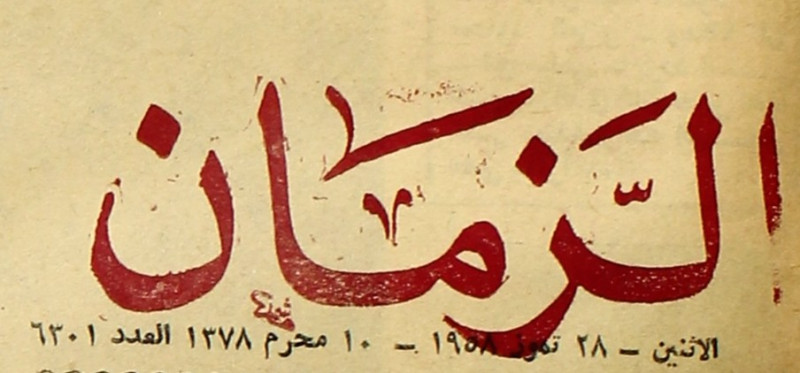 الزّمان
الاثنين – ٢٨ تموز ١٩٥٨ – ١٠ محرم ١٣٧٨ العدد ٦٣٠١